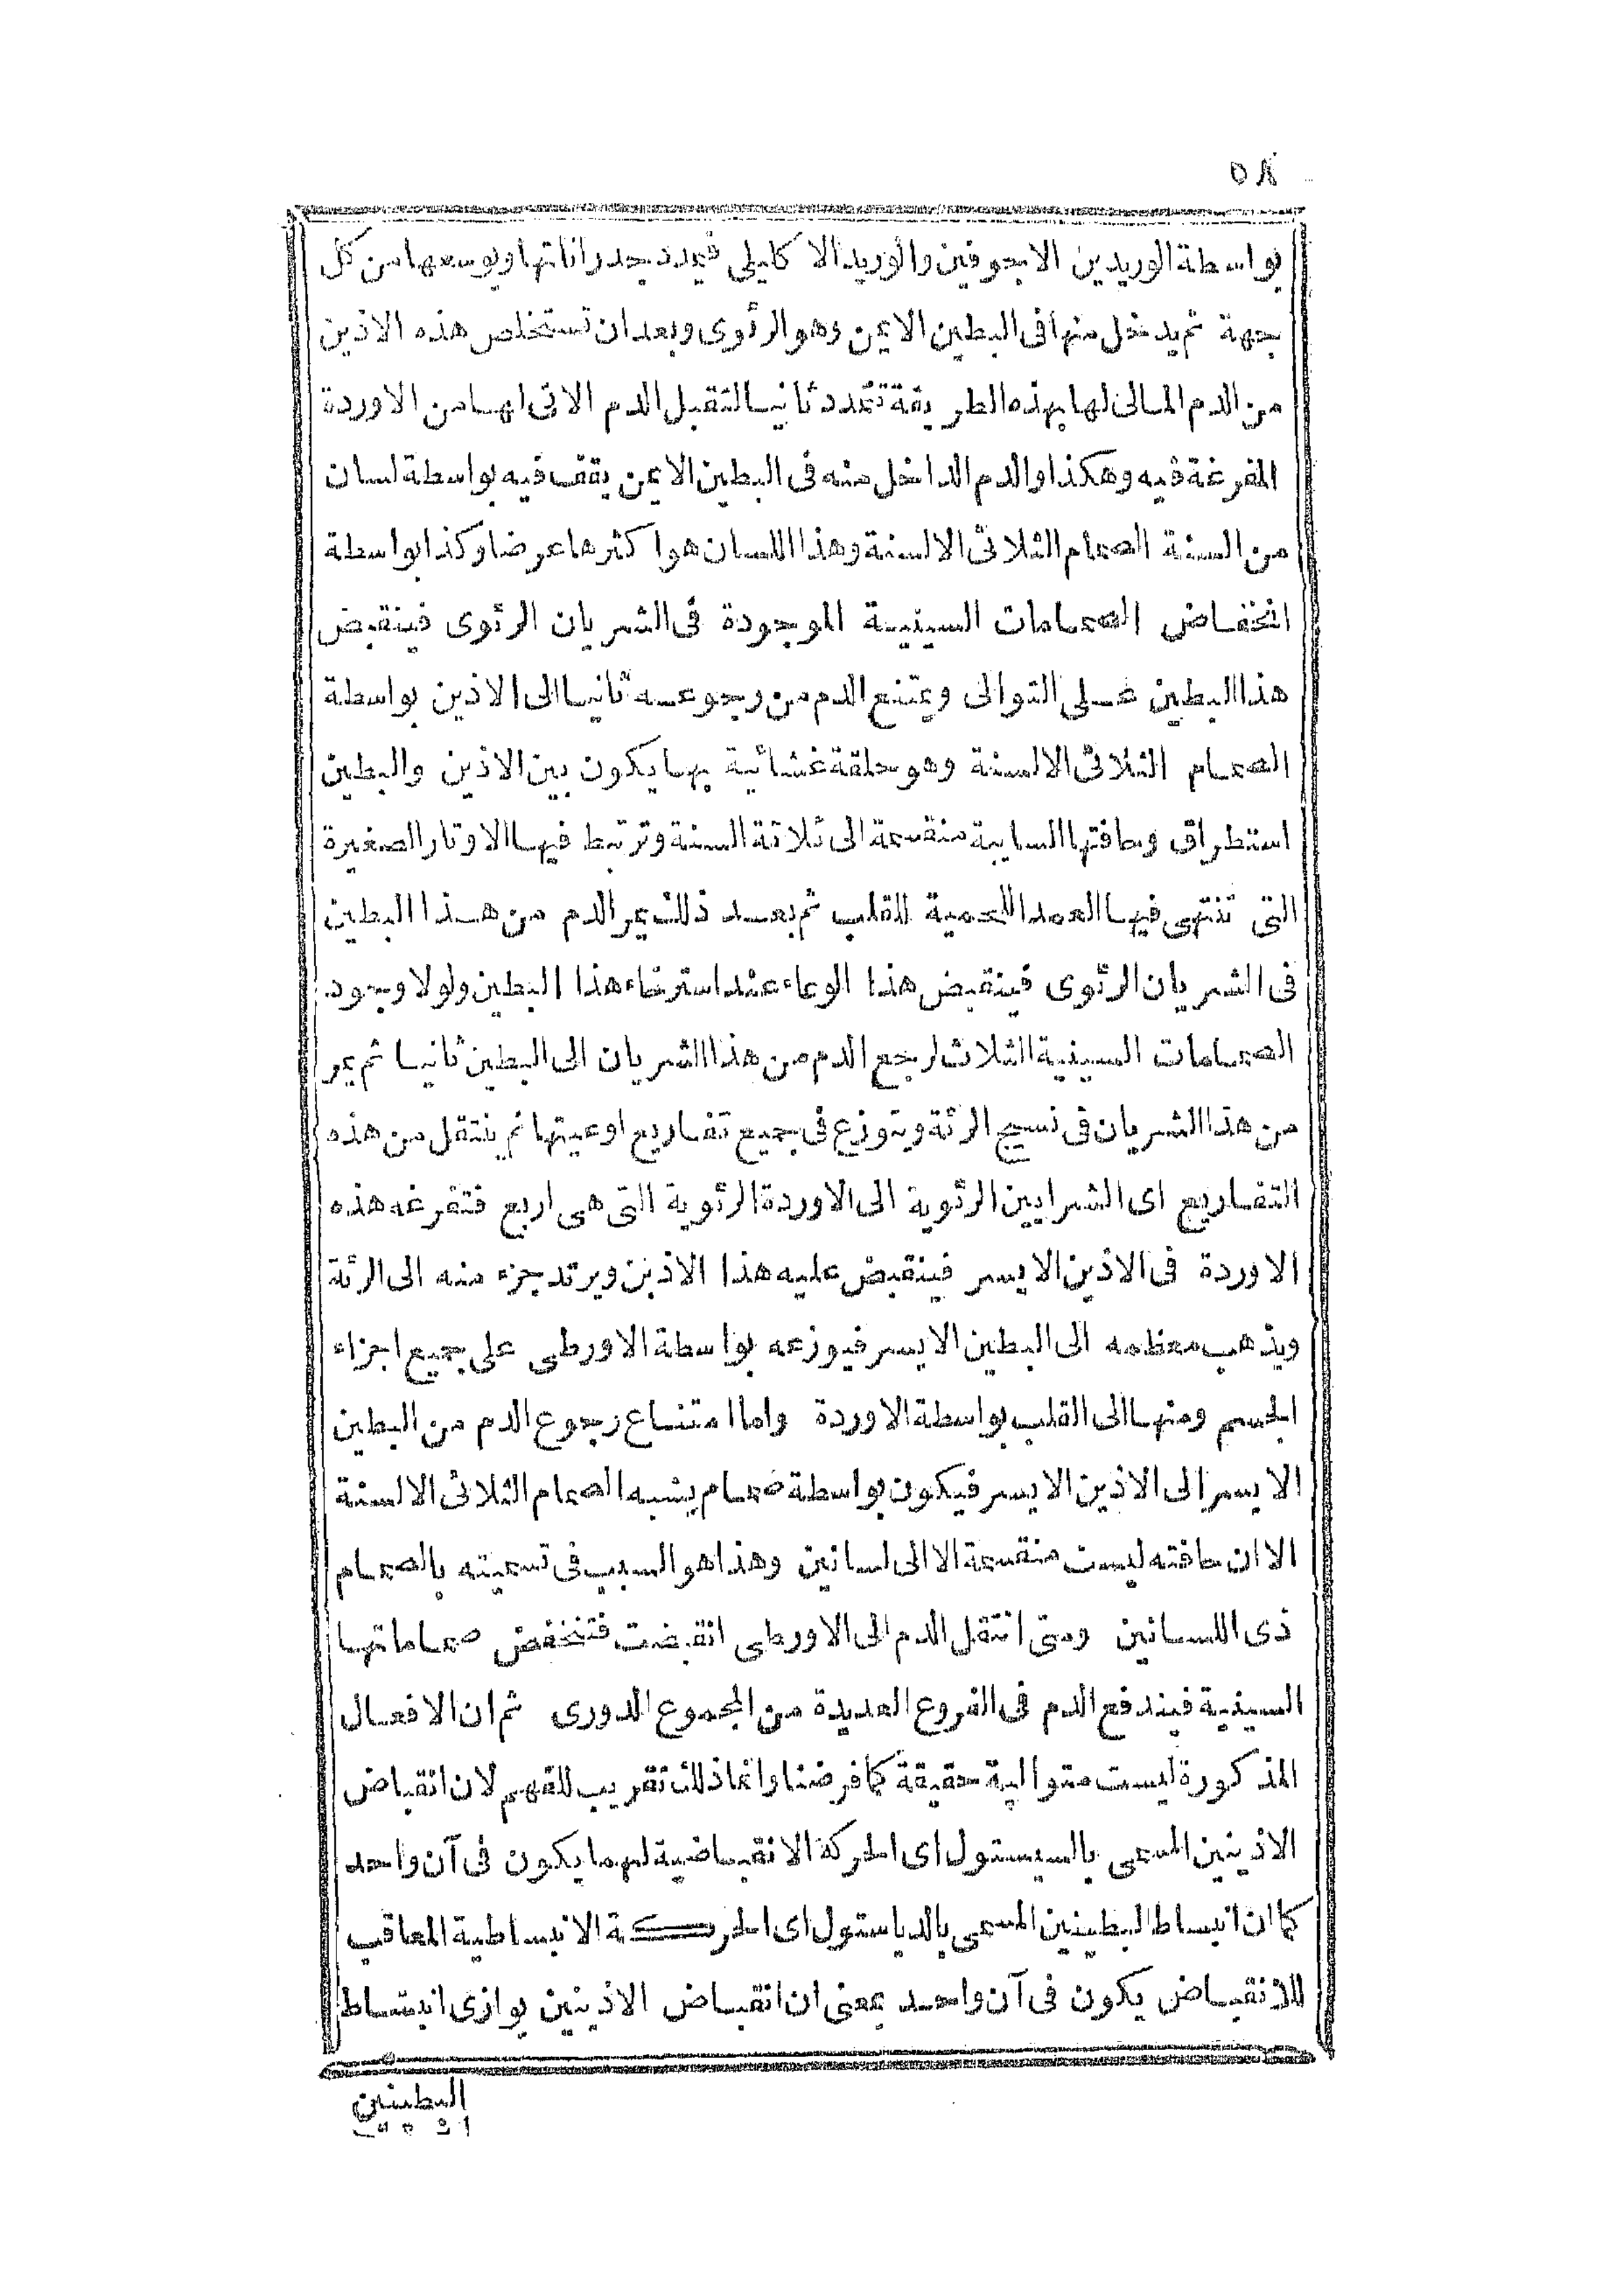 ٥٨
بواسطة الوريدين الاجوفين والوريد الاكليلى فيمدد جدراناتها ويوسعها من كل
جهة ثم يدخل منها فى البطين الايمن وهو الرئوى وبعد ان تستخلص هذه الاذين
من الدم المالئ لها بهذه الطريقة تتمدد ثانيا لتقبل الدم الاتى لها من الاوردة
المفرغة فيه وهكذا والدم الداخل منه فى البطين الايمن يقف فيه بواسطة لسان
من السنة الصمام الثلاثى الالسنة وهذا اللسان هو اكثرها عرضا وكذا بواسطة
انخفاض الصمامات السينية الموجودة فى الشريان الرئوى فينقبض
هذا البطين على التوالى ويمتنع الدم من رجوعه ثانيا الى الاذين بواسطة
الصمام الثلاثى الالسنة وهو حلقة غشائية بها يكون بين الاذين والبطين
استطراق وحافتها السايبة منقسمة الى ثلاثة السنة وترتبط فيها الاوتار الصغيرة
التى تنتهى فيها العمد اللحمية للقلب ثم بعد ذلك يمر الدم من هذا البطين
فى الشريان الرئوى فينقبض هذا الوعاء عند استرخاء هذا البطين ولولا وجود
الصمامات السينية الثلاث لرجع الدم من هذا الشريان الى البطين ثانيا ثم يمر
من هذا الشريان فى نسيج الرئة ويتوزع فى جميع تفاريع اوعيتها ثم ينتقل من هذه
التفاريع اى الشرايين الرئوية الى الاوردة الرئوية التى هى اربع فتفرغه هذه
الاوردة فى الاذين الايسر فينقبض عليه هذا الاذين ويرتد جزء منه الى الرئة
ويذهب معظمه الى البطين الايسر فيوزعه بواسطة الاورطى على جميع اجزاء
الجسم ومنها الى القلب بواسطة الاوردة واما امتناع رجوع الدم من البطين
الايسر الى الاذين الايسر فيكون بواسطة صمام يشبه الصمام الثلاثى الالسنة
الا ان حافته ليست منقسمة الا الى لسانين وهذا هو السبب فى تسميته بالصمام
ذى اللسانين ومتى انتقل الدم الى الاورطى انقبضت فتنخفض صماماتها
السينية فيندفع الدم فى الفروع العديدة من المجموع الدورى ثم ان الافعال
المذكورة ليست متوالية حقيقة كما فرضنا وانما ذلك تقريب للفهم لان انقباض
الاذينين المسمى بالسيستول اى الحركة الانقباضية لهما يكون فى آن واحد
كما ان انبساط البطينين المسمى بالدياستول اى الحركة الانبساطية المعاقب
للانقباض يكون فى آن واحد بمعنى ان انقباض الاذينين يوازى انبساط
البطينين